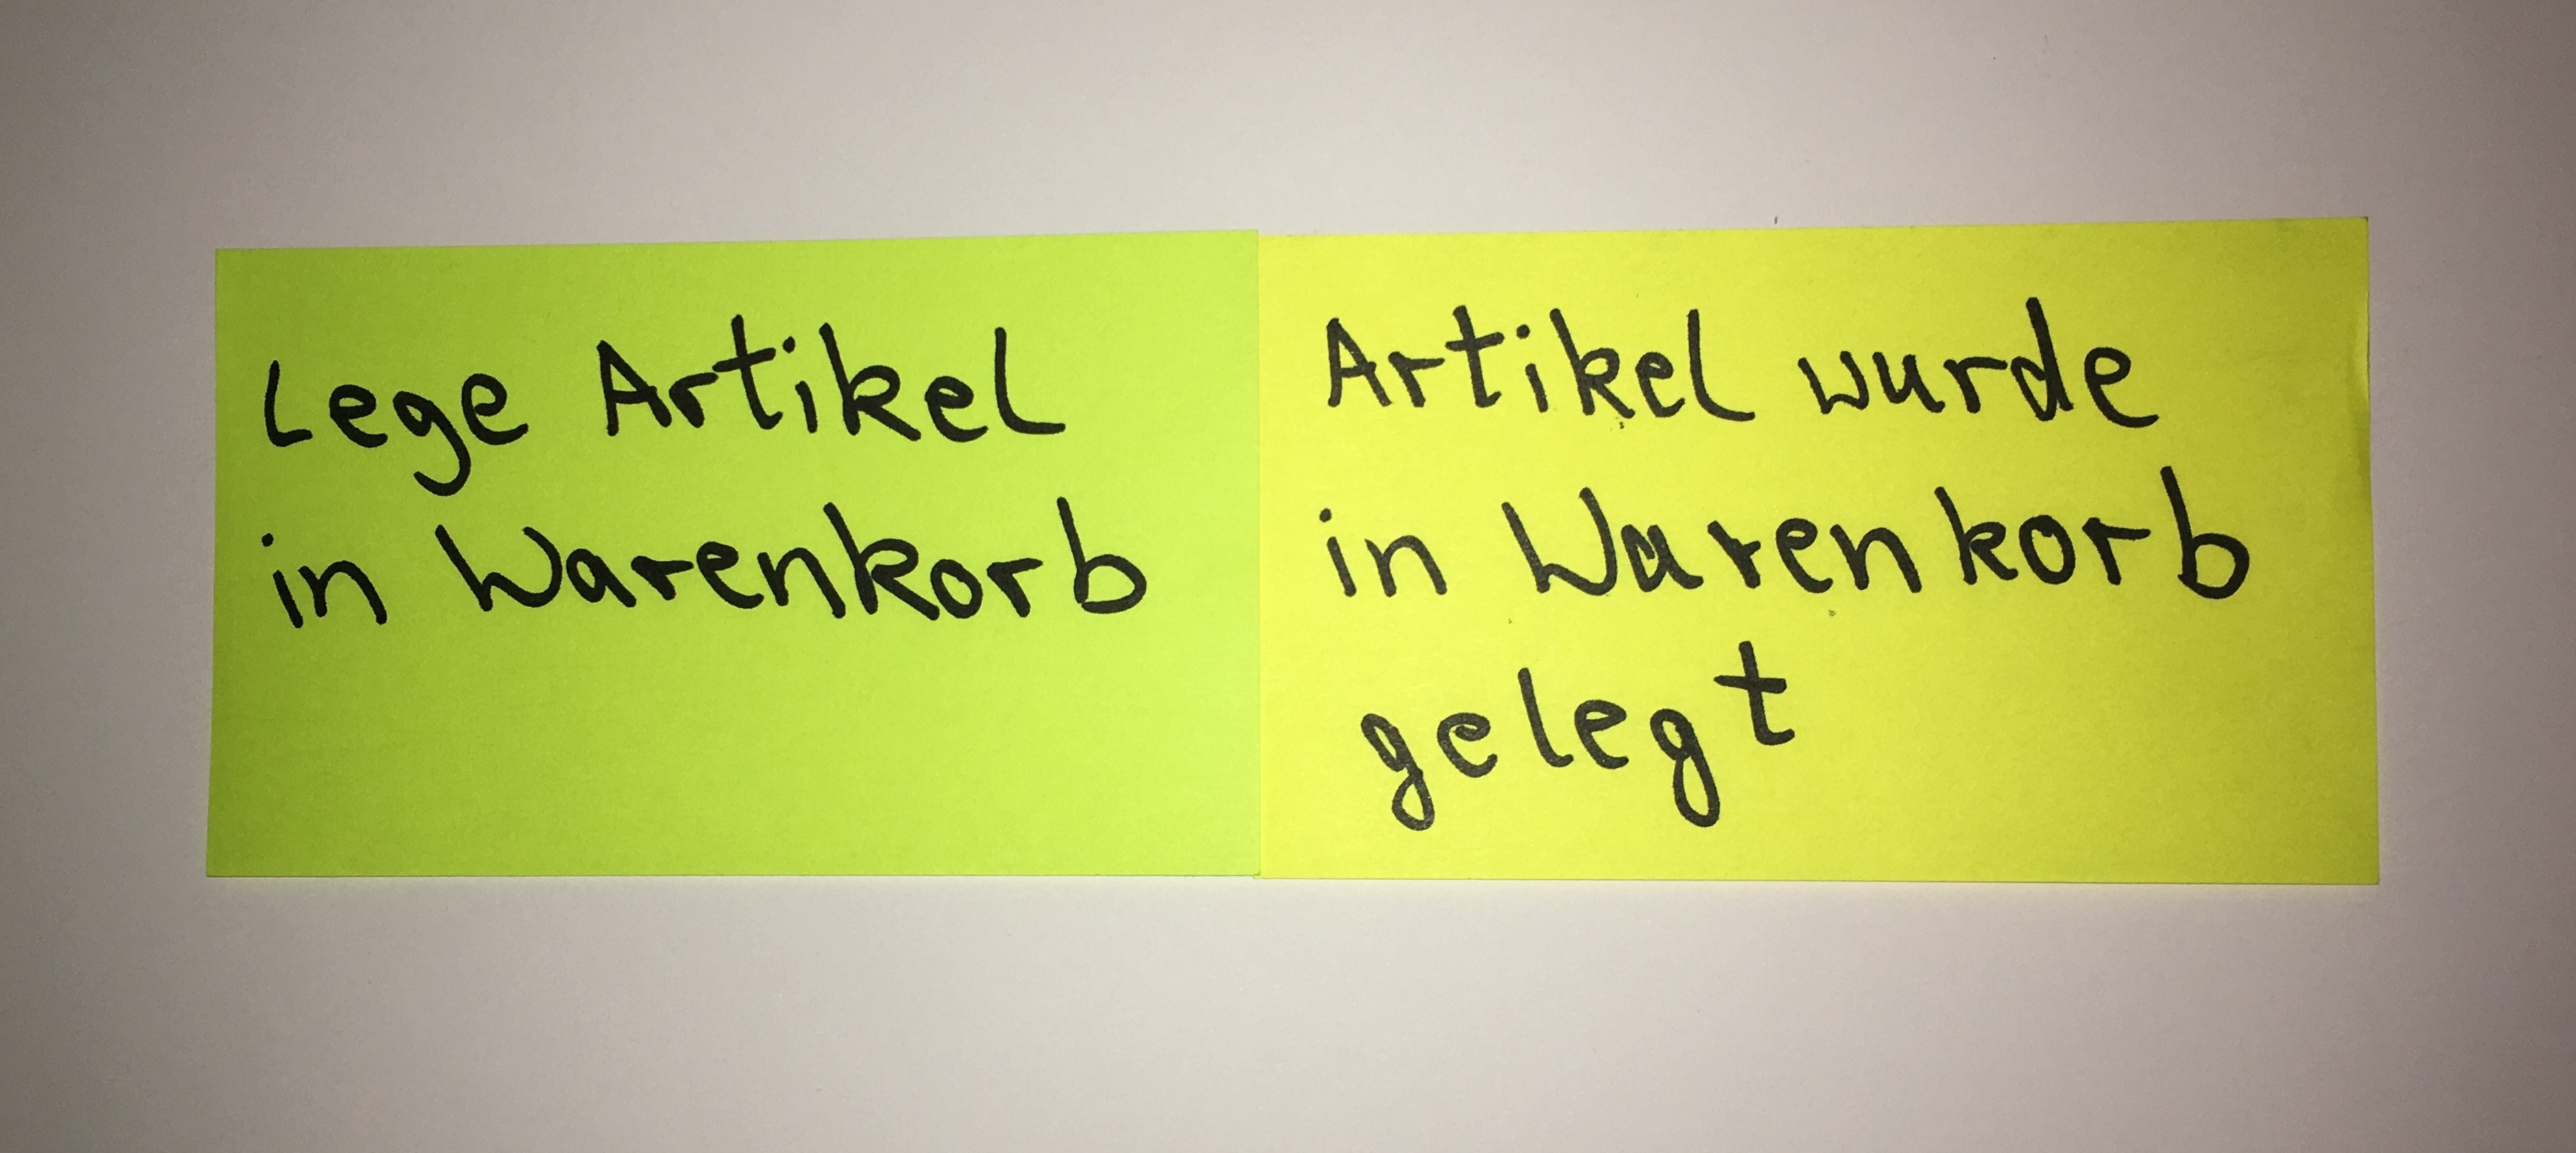 Lege Artikel
in Warenkorb
Artikel wurde
in Warenkorb
gelegt